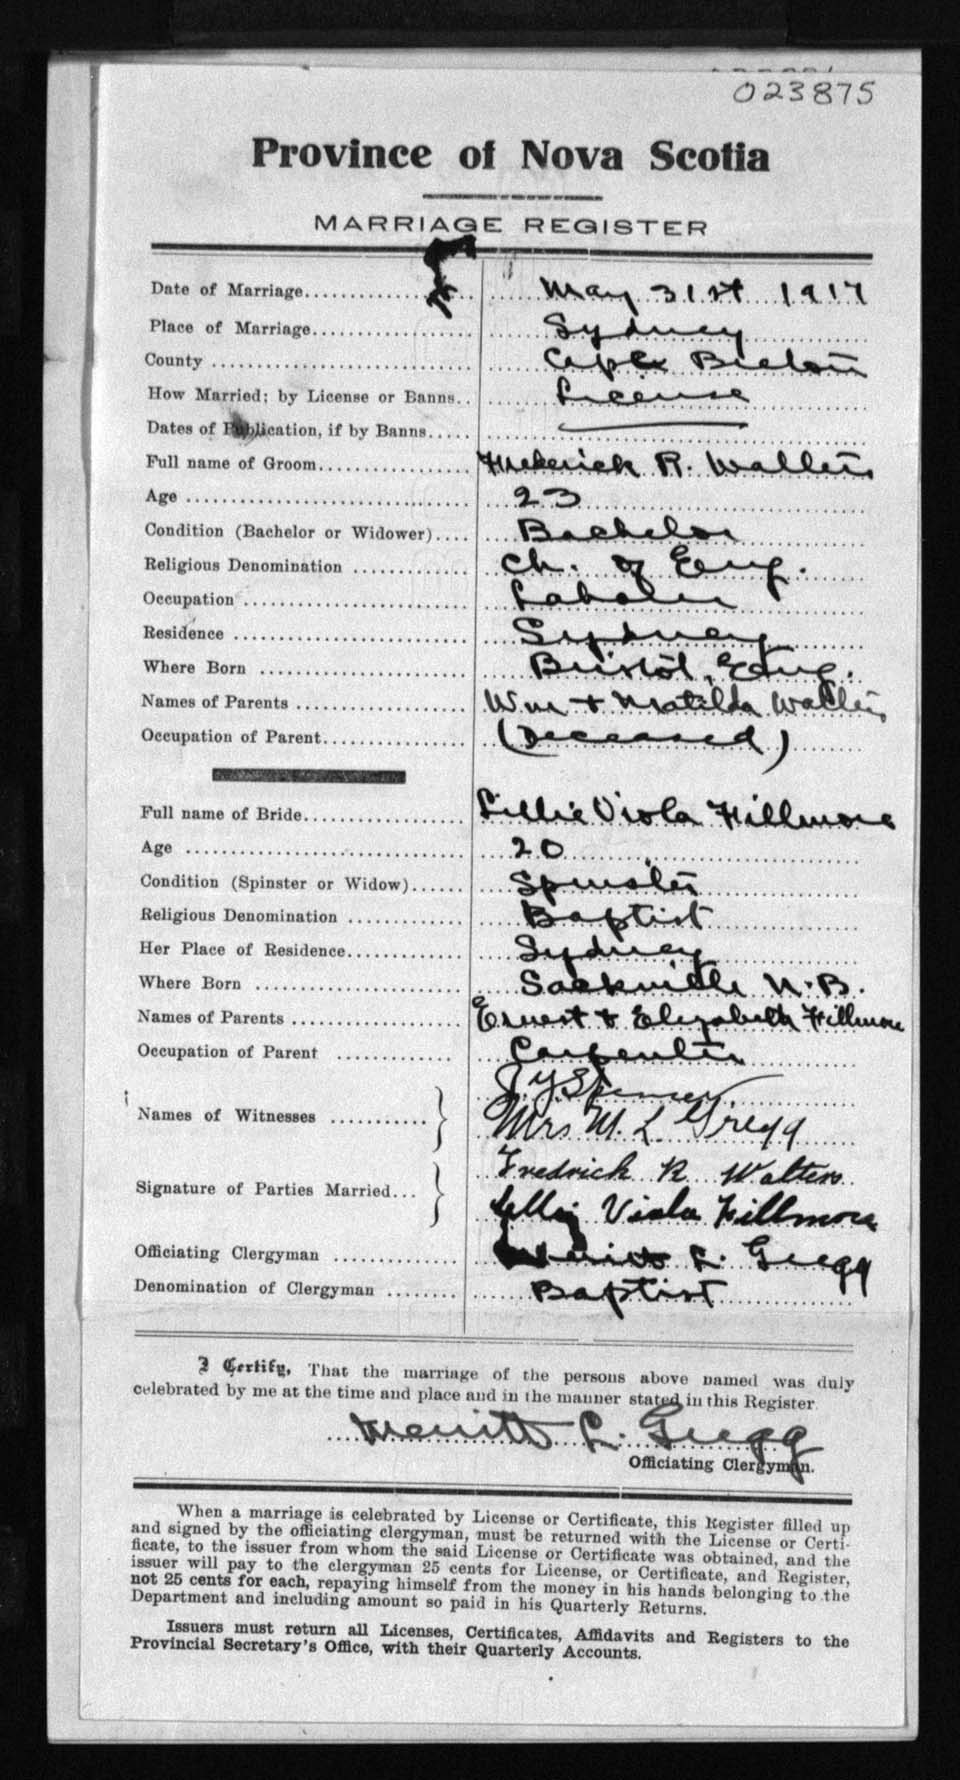 023875
Province of Nova Scotia
MARRIAGE REGISTER
Date of Marriage May 31st 1917
Place of Marriage Sydney
County Cape Breton
How Married; by License or Banns License
Dates of Publication, if by Banns
Full name of Groom Frederick R. Walters
Age 23
Condition (Bachelor or Widower) Bachelor
Religious Denomination Ch. of Eng.
Occupation Laborer
Residence Sydney
Where Born Bristol, Eng.
Names of Parents Wm + Matilda Walters
Occupation of Parent (Deceased)
Full name of Bride Lillie Viola Fillmore
Age 20
Condition (Spinster or Widow) Spinster
Religious Denomination Baptist
Her Place of Residence Sydney
Where Born Sackville N.B.
Names of Parents Ernest & Elizabeth Fillmore
Occupation of Parent Carpenter
J. Y. Spencer
Names of Witnesses Mrs M. L. Gregg
Fredrick R Walters
Signature of Parties Married Viola Fillmore
Officiating Clergyman Merritt L. Gregg
Denomination of Clergyman Baptist
I Certify, That the marriage of the persons above named was duly
celebrated by me at the time and place and in the manner stated in this Register
Merritt L. Gregg
Officiating Clergyman.
When a marriage is celebrated by License or Certificate, this Register filled up
and signed by the officiating clergyman, must be returned with the License or Certi-
ficate, to the issuer from whom the said License or Certificate was obtained, and the
issuer will pay to the clergyman 25 cents for License, or Certificate, and Register,
not 25 cents for each, repaying himself from the money in his hands belonging to the
Department and including amount so paid in his Quarterly Returns.
Issuers must return all Licenses, Certificates, Affidavits and Registers to the
Provincial Secretary's Office, with their Quarterly Accounts.